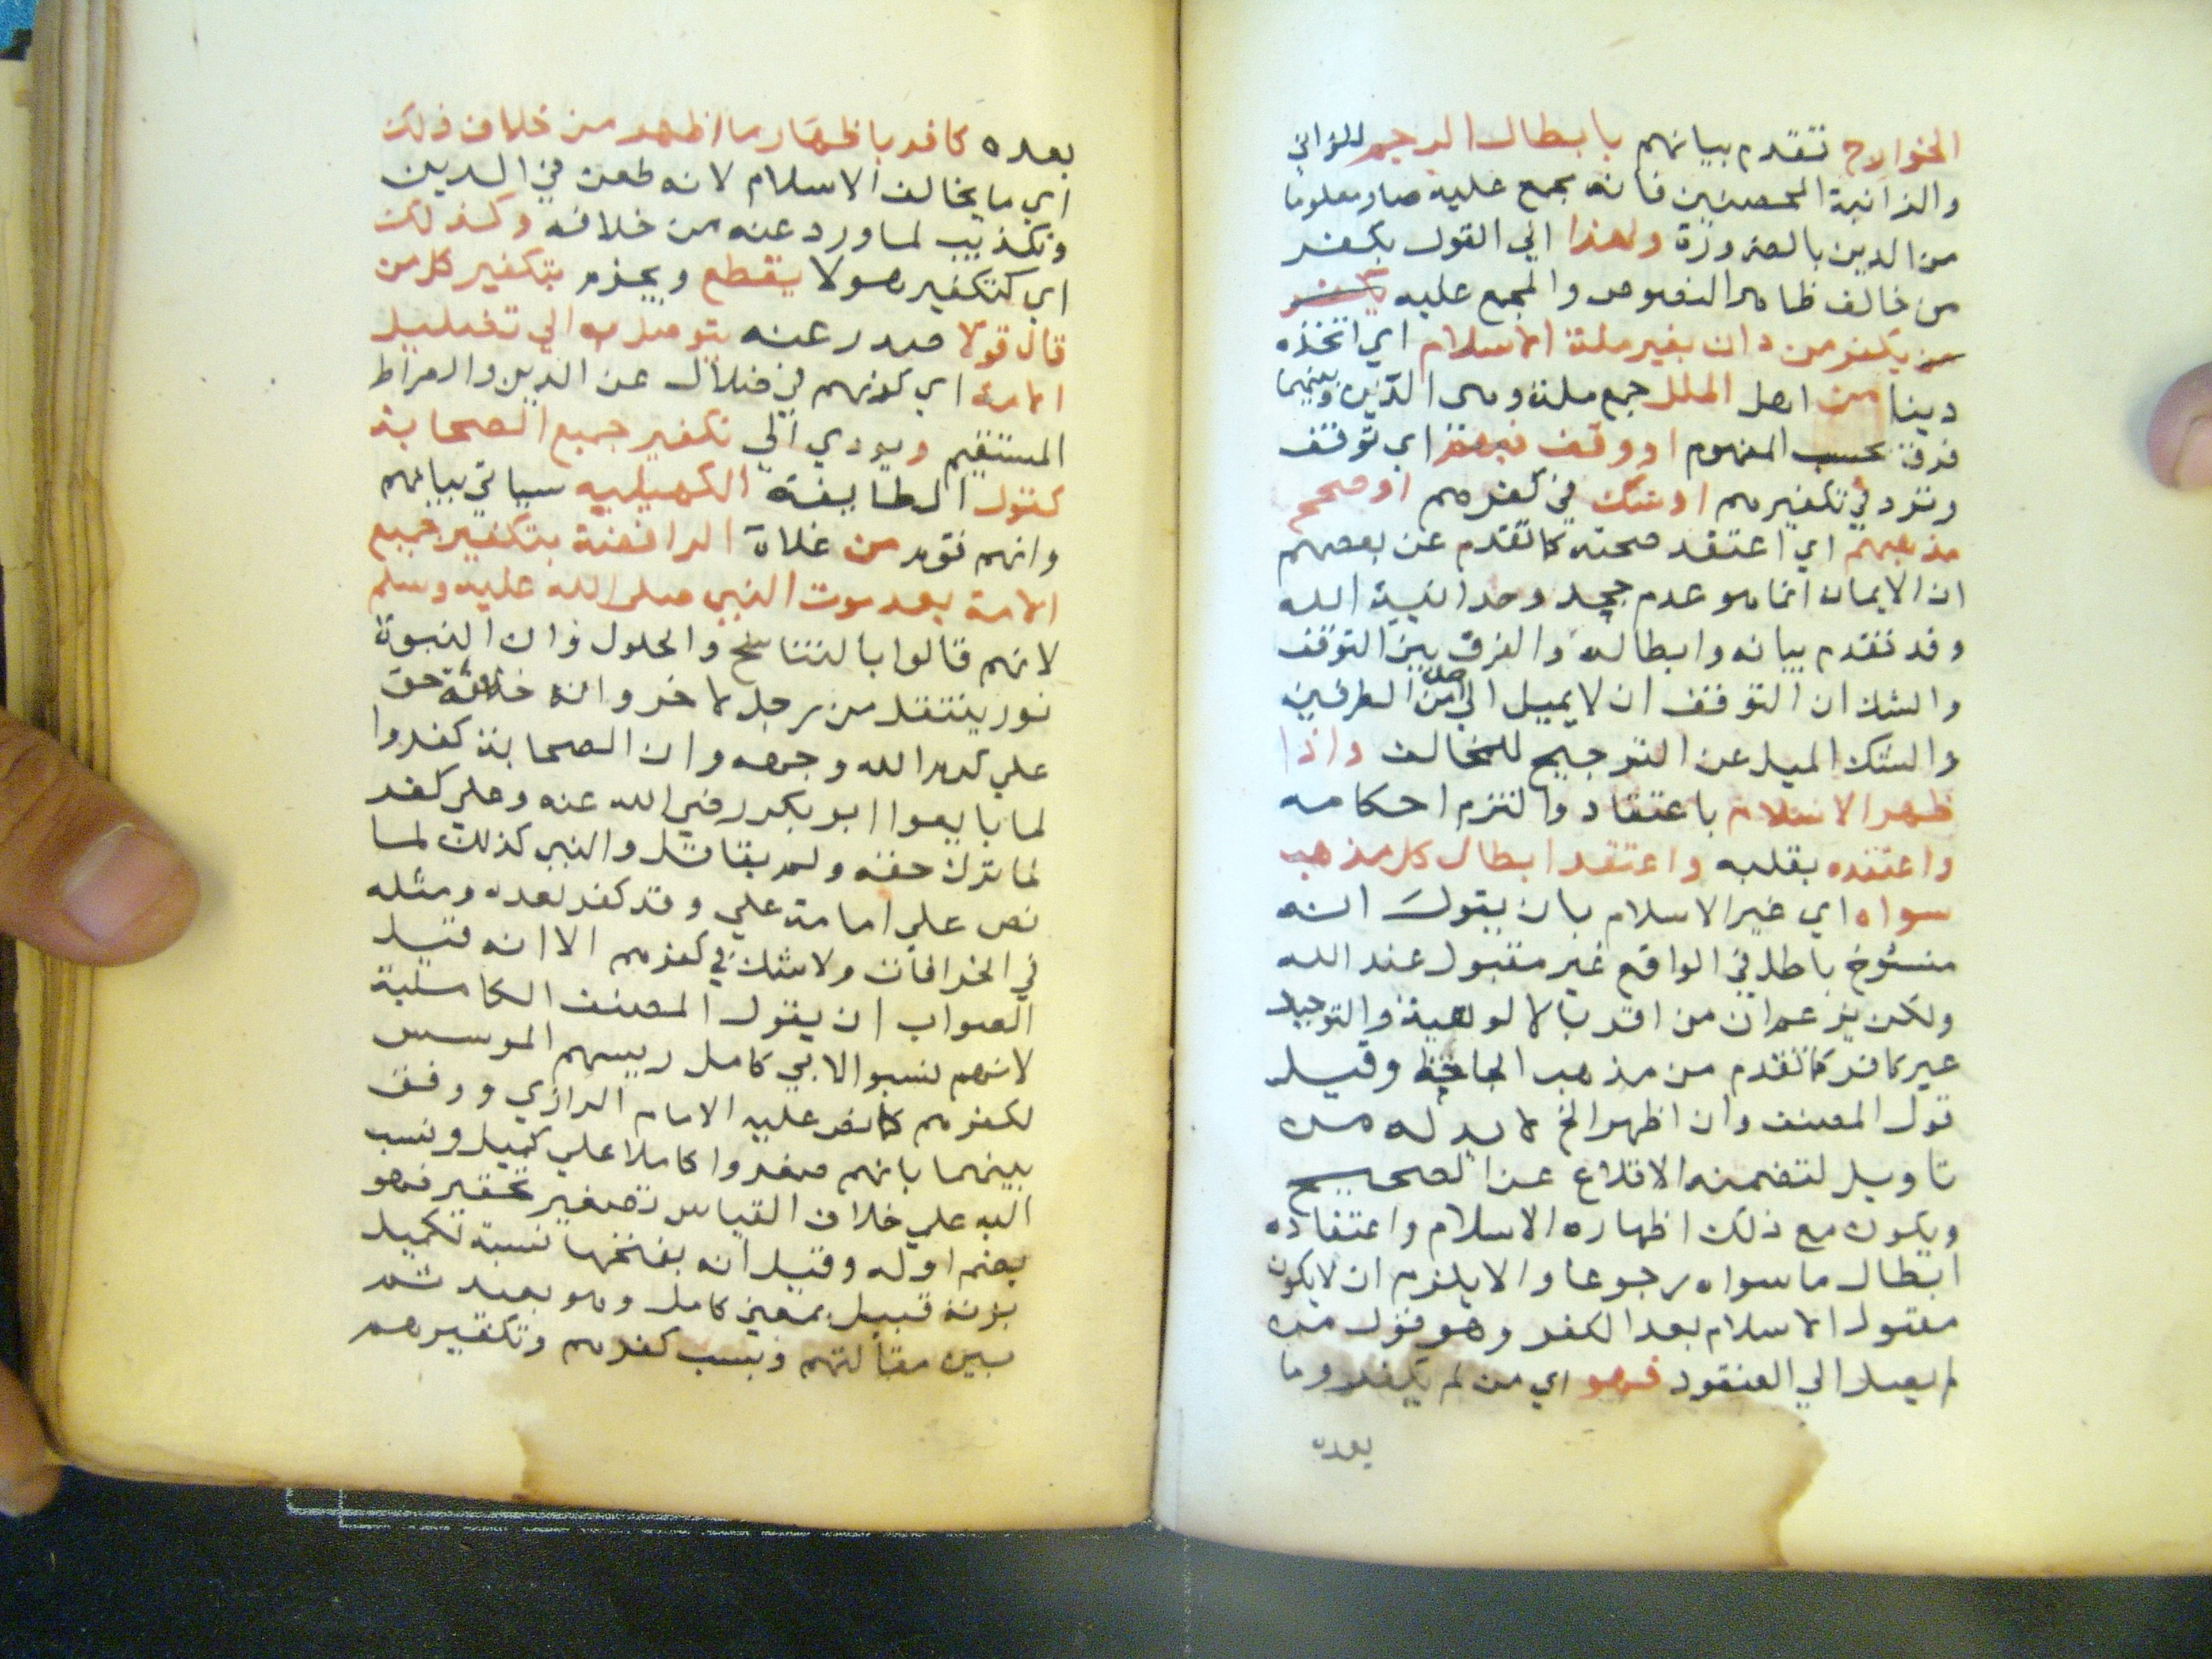 الخوارج تقدم بيانهم بابطال الرجم للزاني
والزانية المحصنين فانه مجمع عليه صار معلوما
من الدين بالضرورة ولهذا اي القول بكفر
من خالف ظاهر النصوص والمجمع عليه يكفر
من يكفر من دان بغير ملة الاسلام اي اتخذه
دينا من اهل الملل جمع ملة وهي الدين وبينهما
فرق بحسب المفهوم او وقف فيهم اي توقف
وتردد في تكفيرهم او شك في كفرهم او صحح
مذهبهم اي اعتقد صحته كما تقدم عن بعضهم
ان الايمان انما هو عدم جحد وحدانية الله
وقد تقدم بيانه وابطاله والفرق بين التوقف
والشك ان التوقف ان لا يميل الي احد من الطرفين
والشك الميل عن الترجيح للمخالف واذا
ظهر الاسلام باعتقاد والتزم احكامه
واعتقده بقلبه واعتقد ابطال كل مذهب
سواه اي غير الاسلام بان يقول انه
منسوخ باطل في الواقع غير مقبول عند الله
ولكن يزعم ان من اقر بالالوهية والتوحيد
غير كافر كما تقدم من مذهب الجاحظ وقيل
قول المصنف وان اظهر الخ لا بد له من
تاويل لتضمنه الاقلاع عن الصحيح
ويكون مع ذلك اظهاره الاسلام واعتقاده
ابطال ما سواه رجوعا والا يلزم ان لا يكون
مقبول الاسلام بعد الكفر وهو قول من
لم يصل الي العنقود فهو اي من لم يكفر وما
بعده
بعده كافر باظهار ما اظهر من خلاف ذلك
اي ما يخالف الاسلام لانه طعن في الدين
وتكذيب لما ورد عنه من خلافه وكذلك
اي كتكفير هولا يقطع ويجزم بتكفير كل من
قال قولا صدر عنه يتوصل به الي تضليل
الامة اي كونهم في ضلال عن الدين والصراط
المستقيم ويودي الي تكفير جميع الصحابة
كقول الطايفة الكميلية سياتي بيانهم
وانهم قوم من غلاة الرافضة بتكفير جميع
الامة بعد موت النبي صلى الله عليه وسلم
لانهم قالوا بالتناسخ والحلول وان النبوة
نور ينتقل من رجل لاخر وانه خلافة حق
علي كرم الله وجهه وان الصحابة كفروا
لما بايعوا ابو بكر رضي الله عنه وعلي كفر
لما ترك حقه ولم يقاتل والنبي كذلك لما
نص علي امامة علي وقد كفر بعده ومثله
في الخرافات ولا شك في كفرهم الا انه قيل
الصواب ان يقول المصنف الكاملية
لانهم نسبوا لابي كامل رييسهم الموسس
لكفرهم كما نص عليه الامام الرازي ووفق
بينهما بانهم صغروا كاملا علي كميل ونسب
اليه علي خلاف القياس تصغير تحقير فهو
بضم اوله وقيل انه بفتحها نسبة لكميل
بزنة قبيل بمعني كامل وهو بعيد ثم
بين مقالتهم وبسبب كفرهم وتكفيرهم